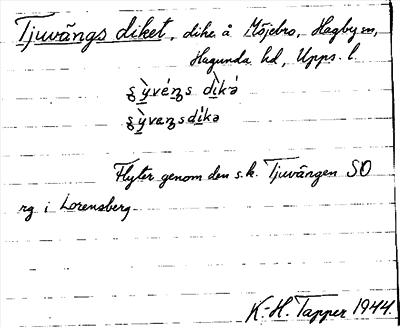 Tjuvängs diket, dike å Möjebro, Hagby sn,
Hagunda hd, Upps. l.
Flyter genom den s.k. Tjuvängen SO
rg i Lorensberg.
K.-H. Tapper 1944.